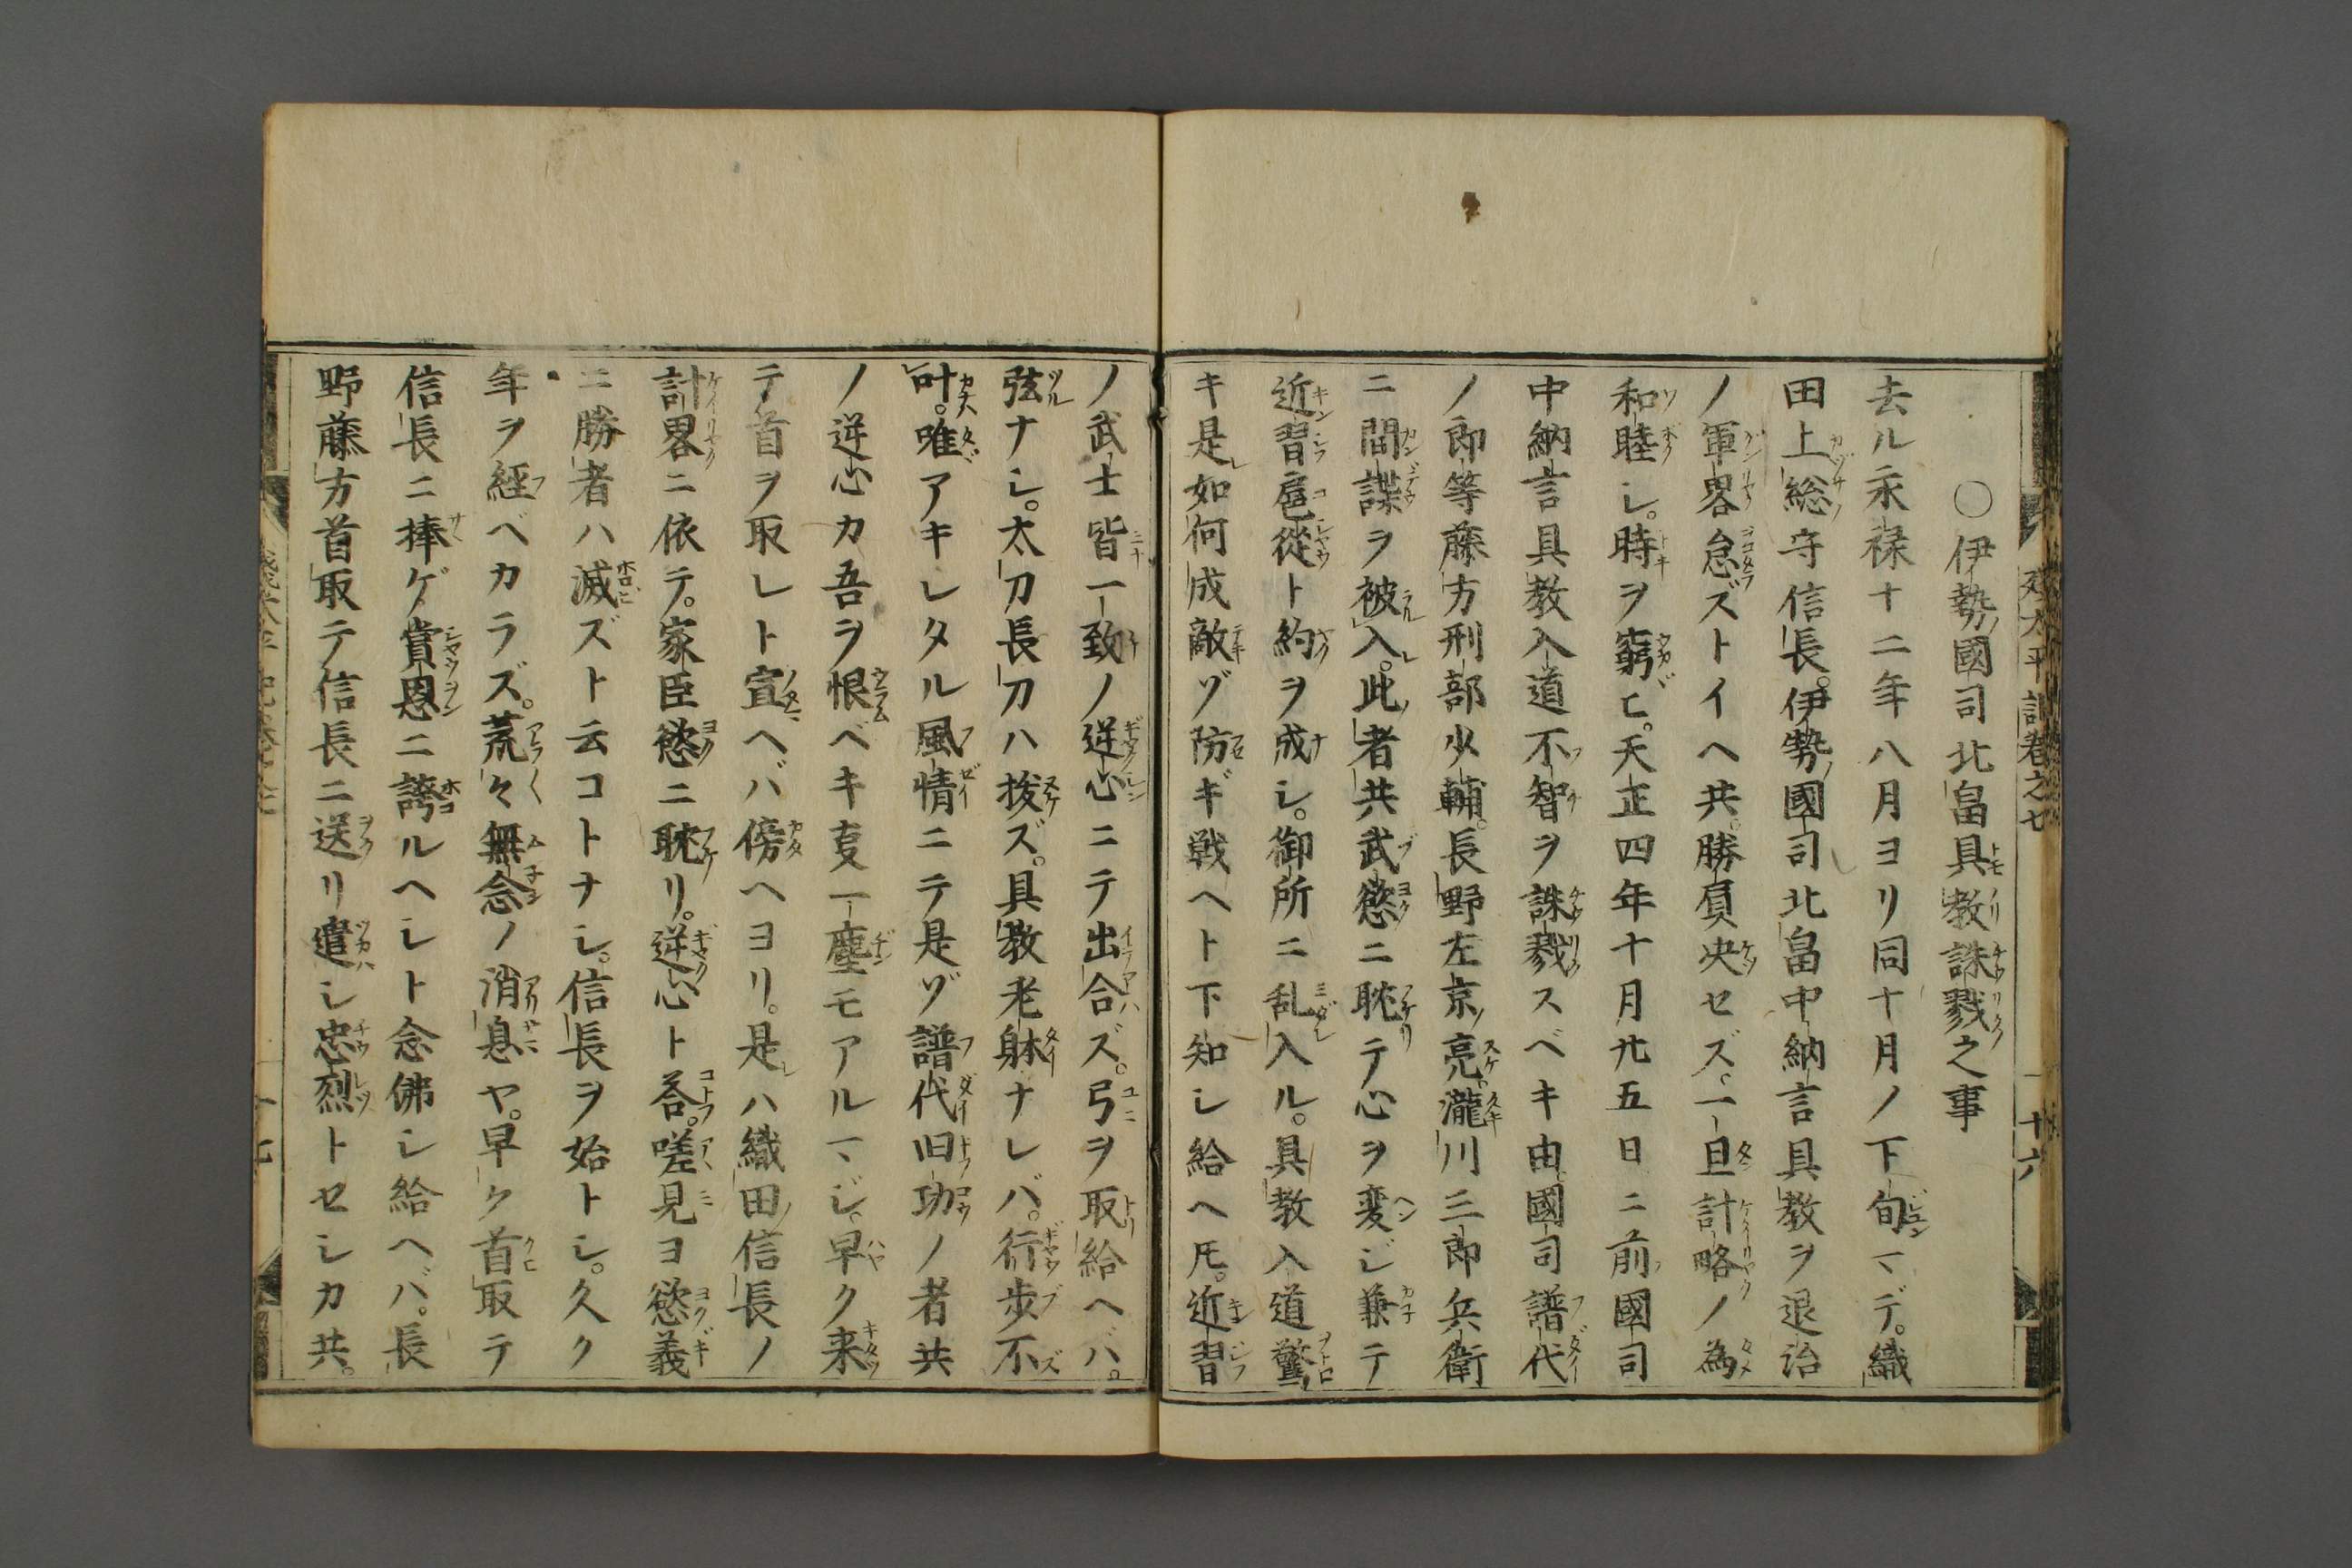 ○伊勢國司北畠具教誅戮之事
去ル永禄十二年八月ヨリ同十月ノ下旬マデ。織
田上総守信長。伊勢國司北畠中納言具教ヲ退治
ノ軍畧怠ズトイヘ共。勝負决セズ。一旦計略ノ為
和睦シ。時ヲ窮ヒ。天正四年十月廿五日ニ前國司
中納言具教入道不智ヲ誅戮スベキ由。國司譜代
ノ郎等藤方刑部少輔。長野左京亮。瀧川三郎兵衛
ニ間諜ヲ被入。此者共武慾ニ耽テ心ヲ変ジ兼テ
近習扈從ト約ヲ成シ。御所ニ乱入ル。具教入道驚
キ是如何成敵ゾ防ギ戦ヘト下知シ給ヘ𪜈。近習
ノ武士皆一致ノ逆心ニテ出合ズ。弓ヲ取給ヘバ。
弦ナシ。太刀長刀ハ抜ズ。具教老躰ナレバ。行歩不
叶。唯アキレタル風情ニテ是ゾ譜代旧功ノ者共
ノ逆心カ吾ヲ恨ベキ叓一塵モアルマジ。早ク来
テ首ヲ取レト宣ヘバ傍ヘヨリ。是ハ織田信長ノ
計畧ニ依テ。家臣慾ニ耽リ。逆心ト荅。嗟見ヨ慾義
ニ勝者ハ滅ズト云コトナシ。信長ヲ始トシ。久ク
年ヲ經ベカラズ。荒々無念ノ消息ヤ。早ク首取テ
信長ニ捧ゲ賞恩ニ誇ルヘシト念佛シ給ヘバ。長
野藤方首取テ信長ニ送リ遣シ忠烈トセシカ共。
太平記卷之七
十六